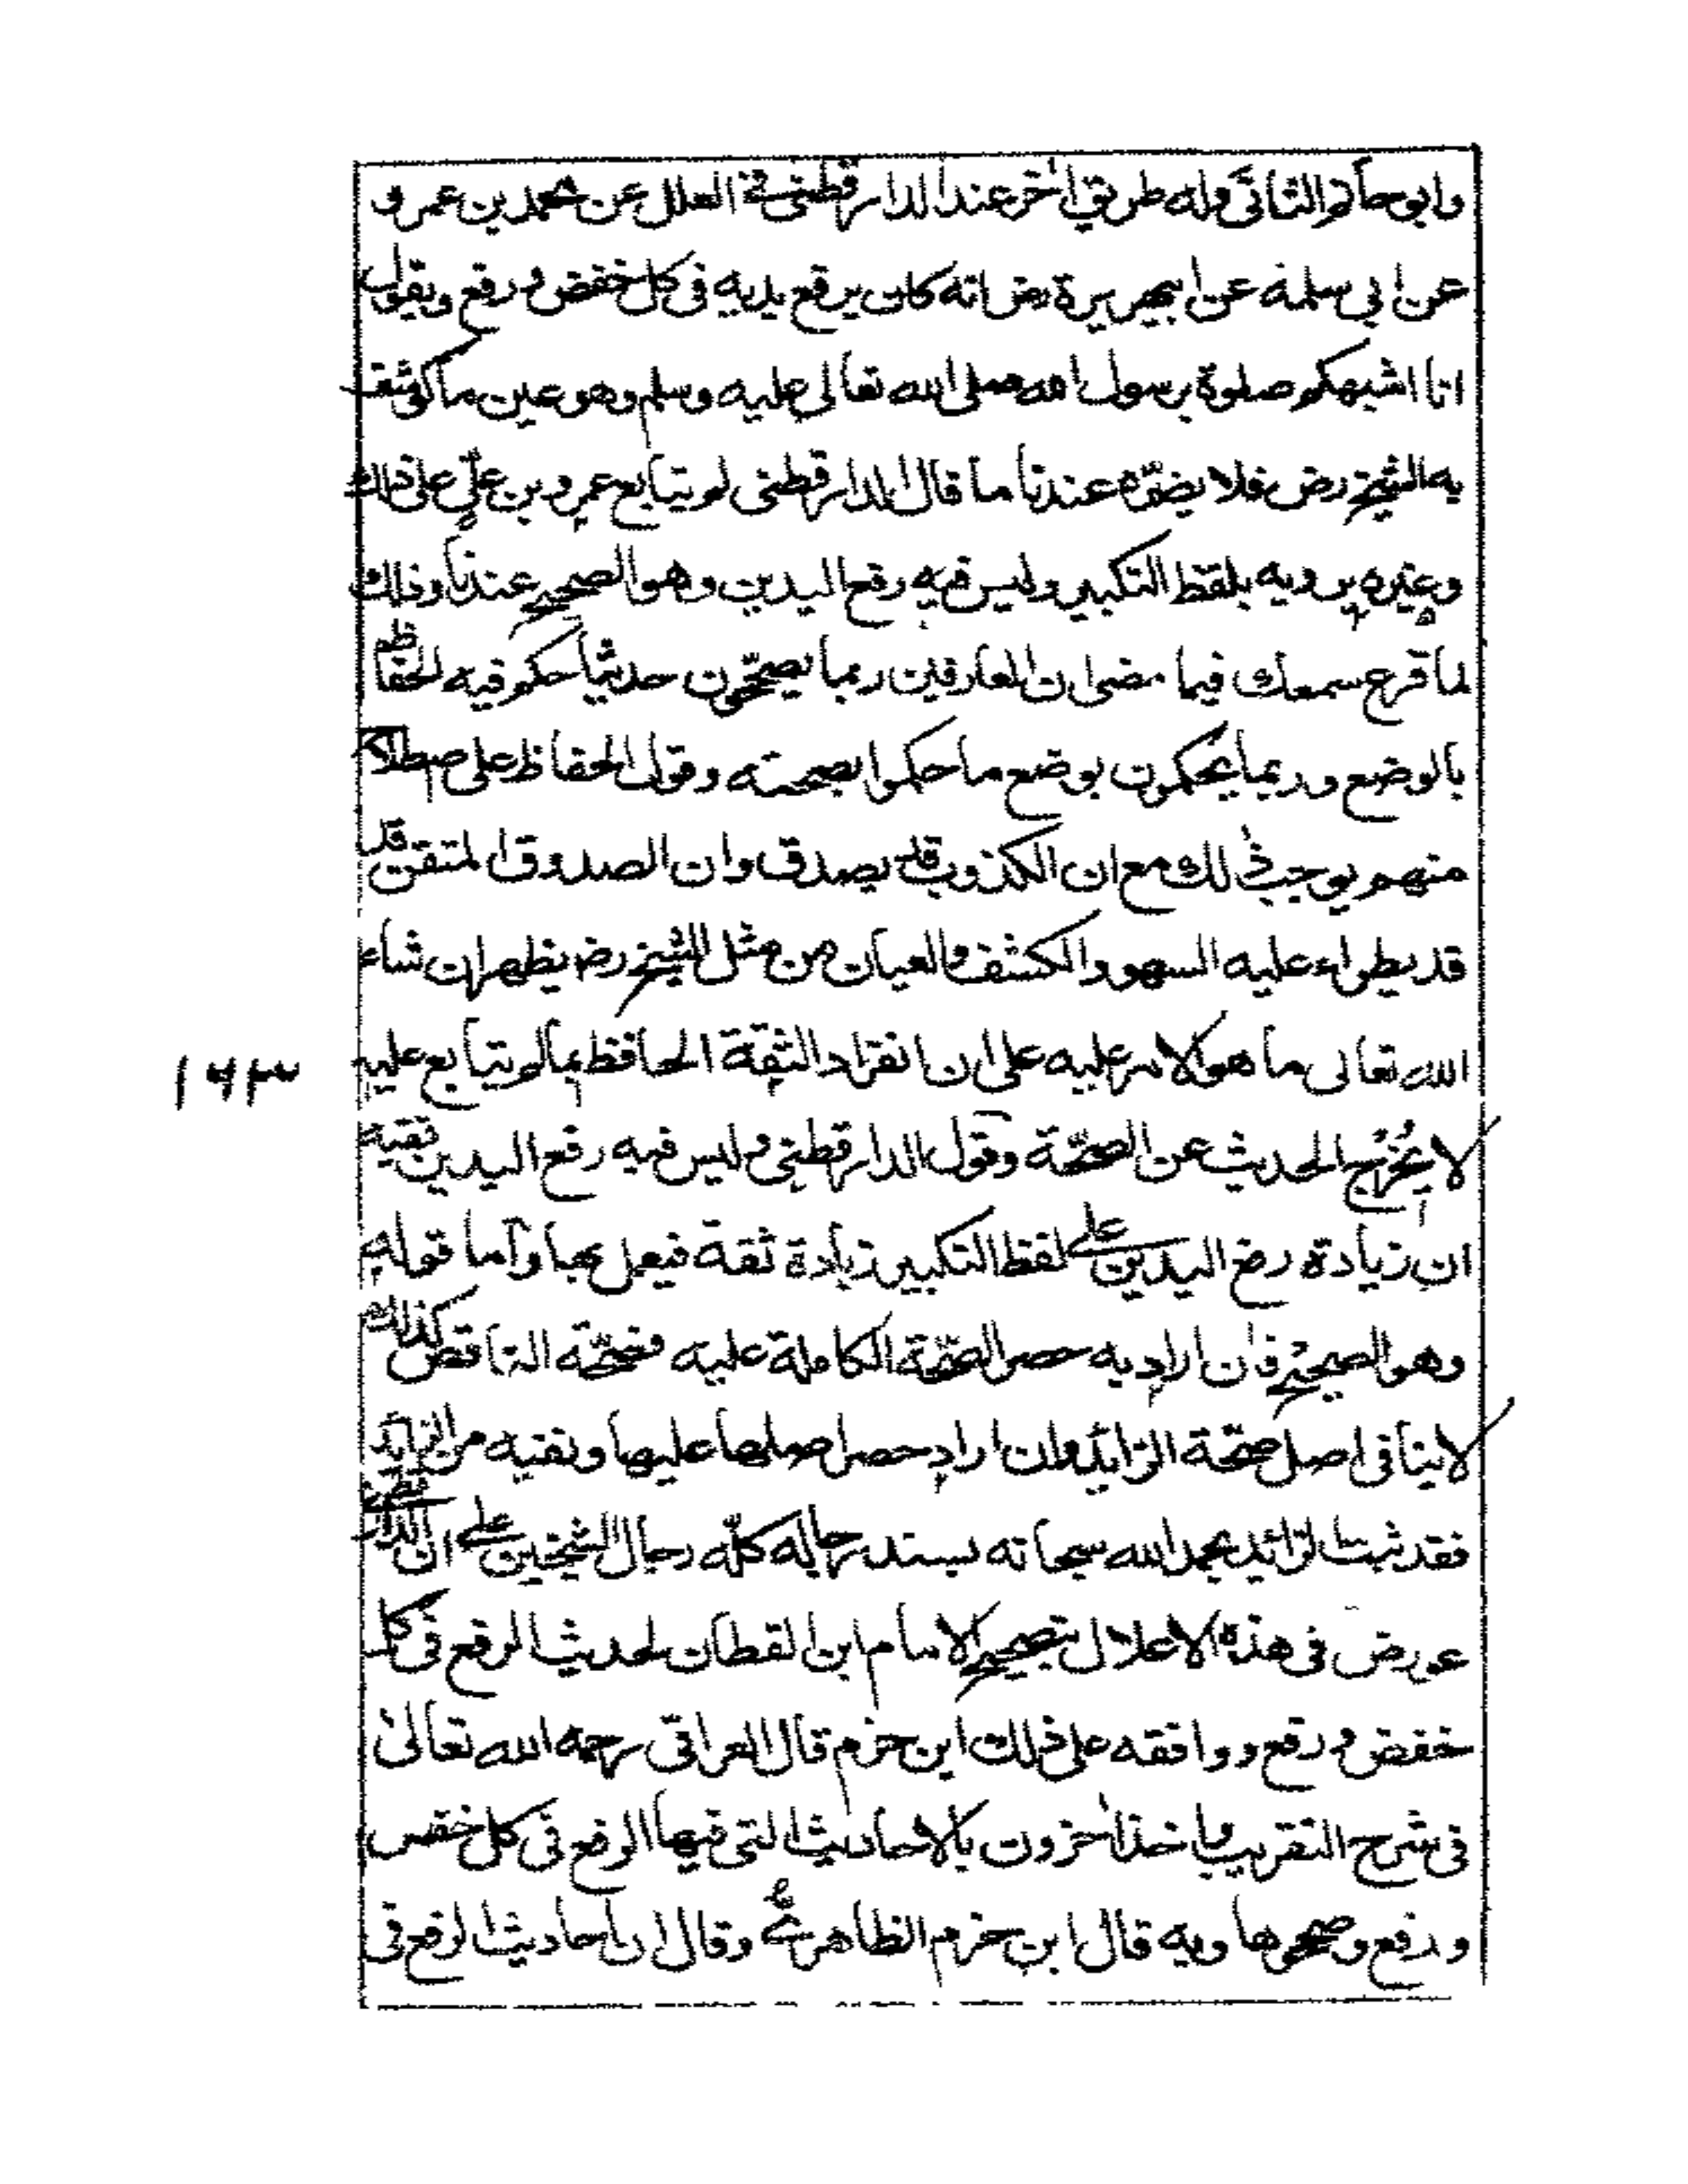 وابو حاتم الثانى وله طريق اٰخر عند الدارقطنى فى العلل عن محمد بن عمرو
عن ابى سلمة عن ابيهريرة رض انه كان يرفع يديه فى كل خفض ورفع ويقول
انا اشبهكم صلوة برسول الله صلى الله تعالى عليه وسلم وهو عين ما كوشف
به الشيخ رض فلا يضرّه عندنا ما قال الدارقطنى لم يتابع عمرو بن علىّ على ذلك
وغيره يرويه بلفظ التكبير وليس فيه رفع اليدين وهو الصحيح عندنا وذلك
لما قرع سمعك فيما مضى ان العارفين ربما يصحّحون حديثا حكم فيه الحفاظ
بالوضع وربما يحكمون بوضع ما حكموا بصحته وقول الحفاظ على اصطلاح
منهم يوجب ذٰلك مع ان الكذوب قد يصدق وان الصدوق المتقن قد
قد يطراء عليه السهو والكشف والعيان من مثل الشيخ رض يظهر ان شاء
الله تعالى ما هو الامر عليه على ان انفراد الثقة الحافظ بما لم يتابع عليه
١٦٣
لا يُخْرُج الحديث عن الصحّة وقول الدارقطنى وليس فيه رفع اليدين نفيه
ان زيادة رفع اليدين على لفظ التكبير زيادة ثقة فيعمل بها وآما قوله
وهو الصحيح فان اراد به حصر الصحّة الكاملة عليه فصحّة الناقص كذلك
لا ينافى اصل صحّة الزائد وان اراد حصر اصلها عليها ونفيه من الزائد
فقد ثبت الزائد بحمد الله سبحانه بسند رجاله كلّه رجال الشيخين على ان الدارقطنى
عورض فى هذه الاعلال بتصحيح الامام ابن القطان لحديث الرفع فى كل
خفض ورفع ووافقه على ذلك ابن حزم قال العراقى رحمه الله تعالىٰ
فى شرح التقريب واخذ اٰخرون بالاحاديث التى فيها الرفع فى كل خفض
ورفع وصححوها وبه قال ابن حزم الظاهرى وقال ان احاديث الرفع فى